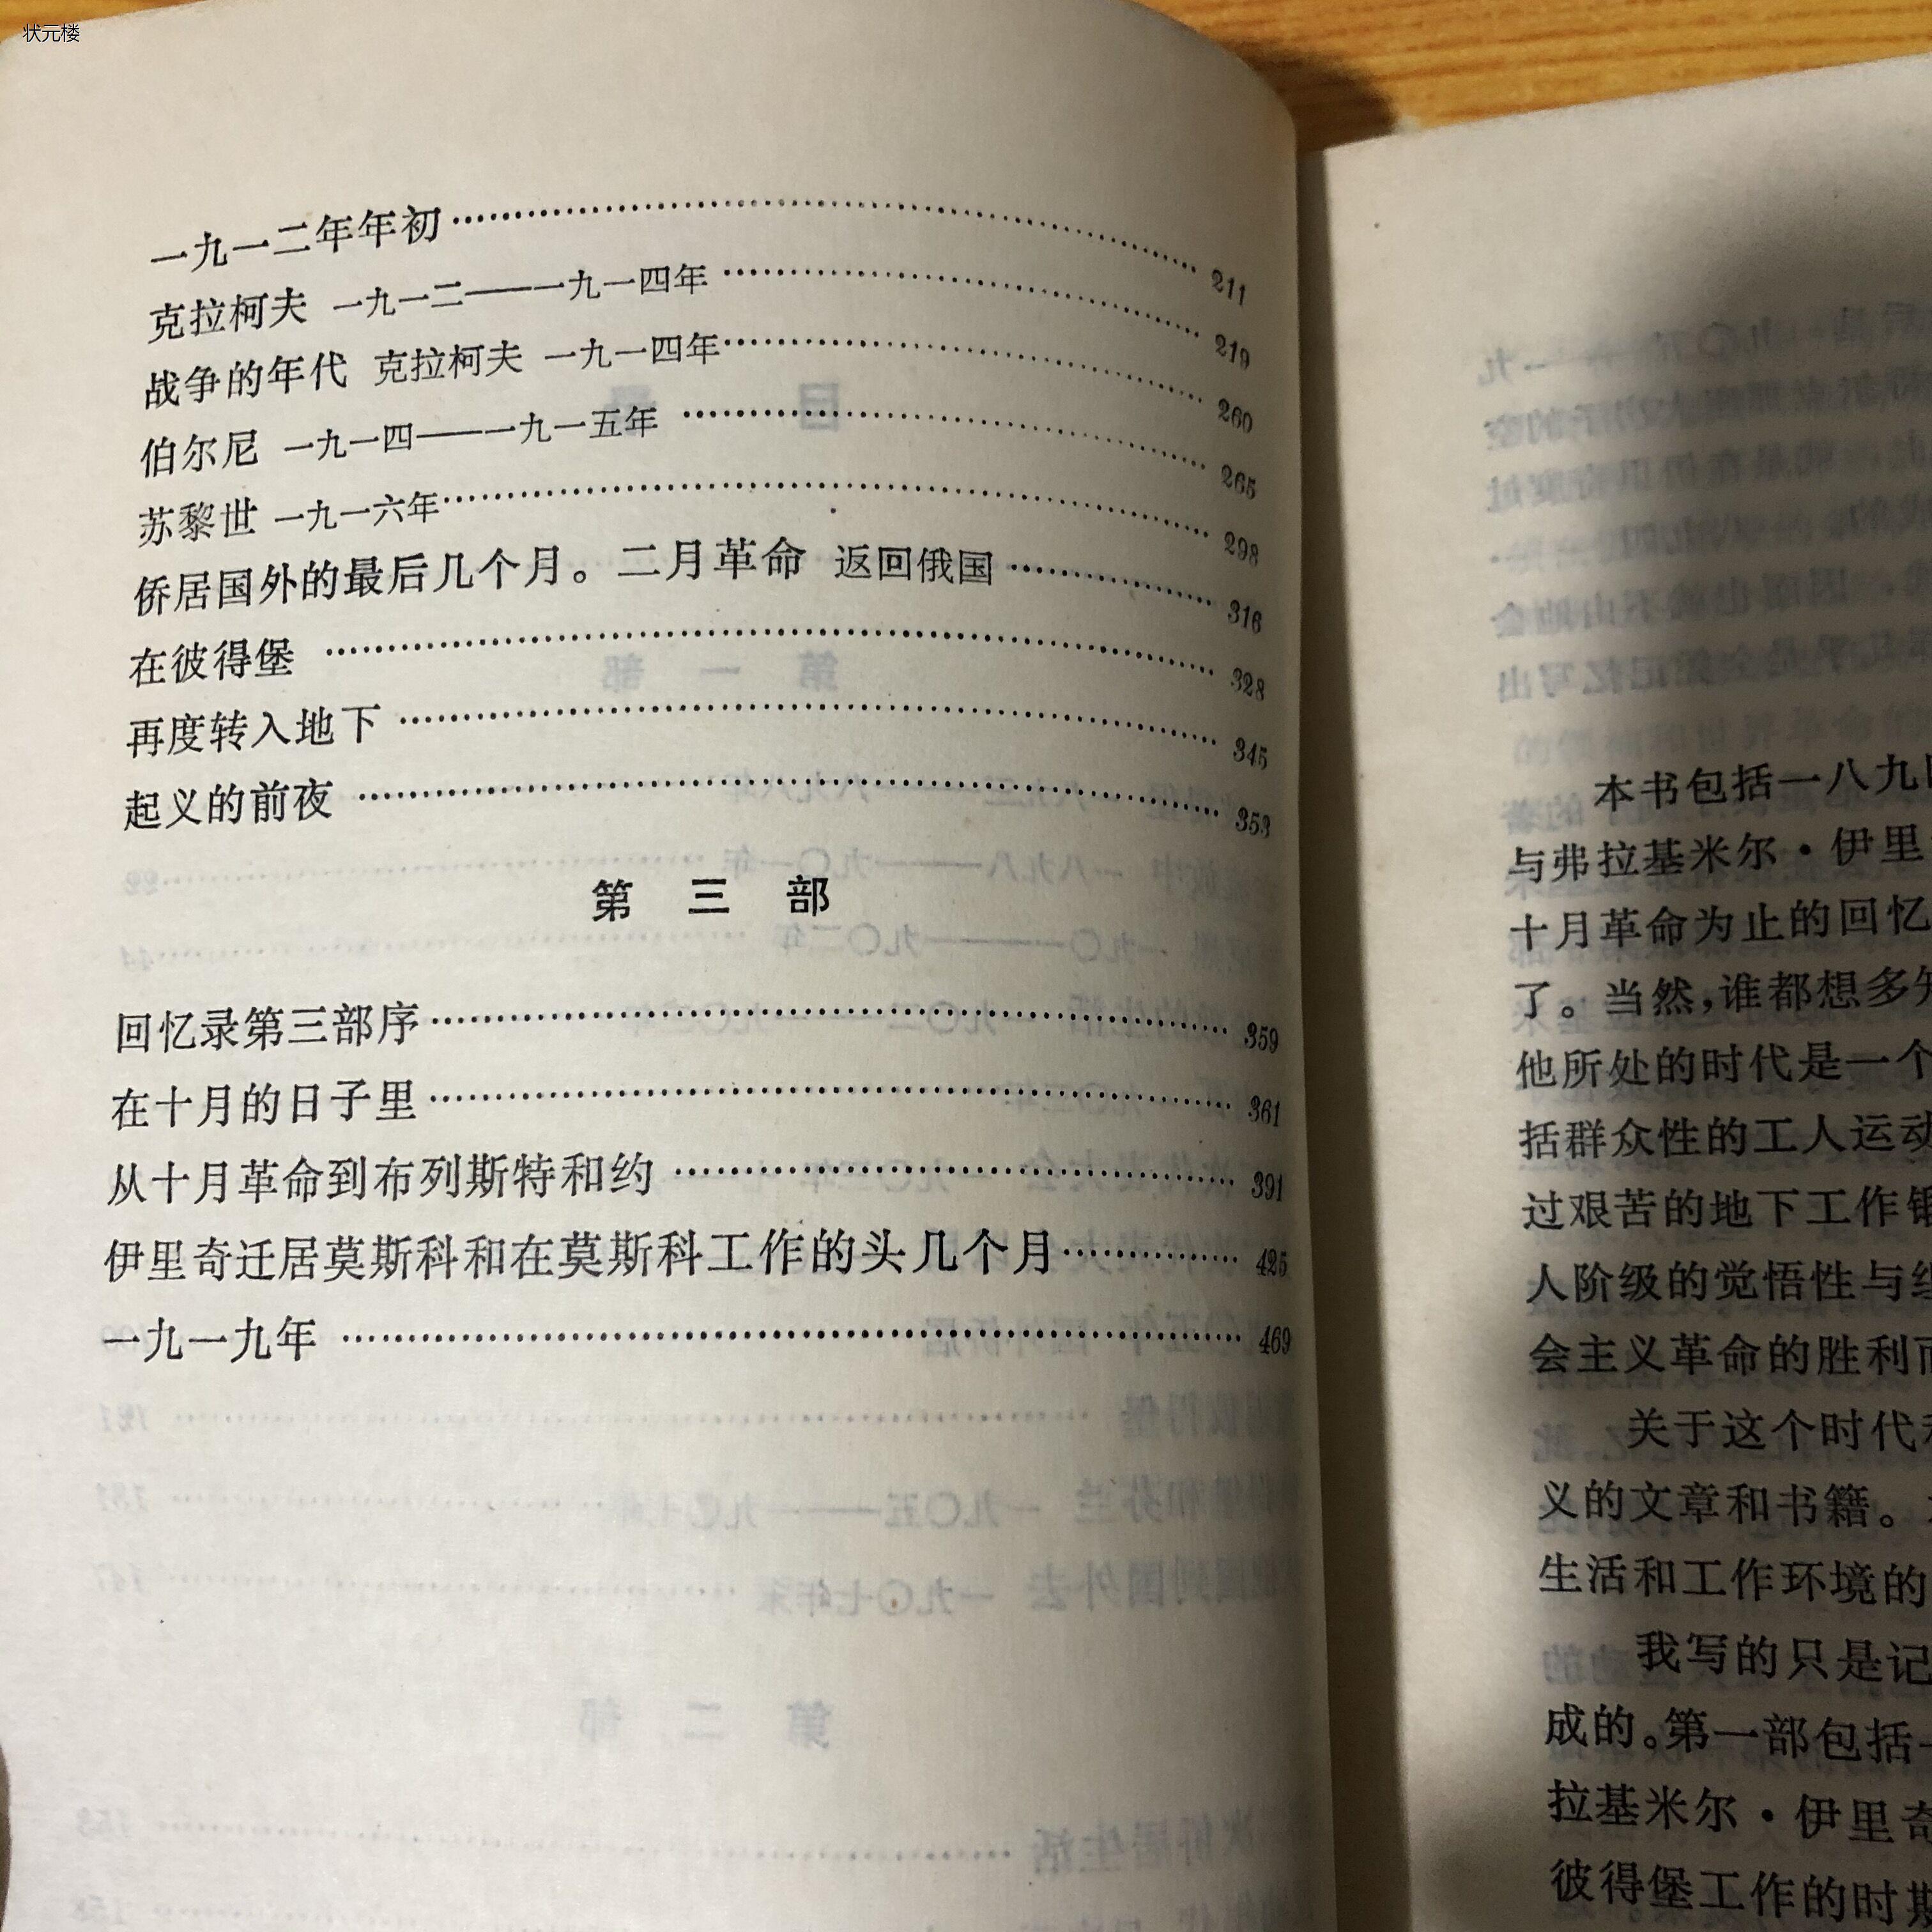 状元楼
一九一二年年初……211
克拉柯夫 一九一二——一九一四年……219
战争的年代 克拉柯夫 一九一四年……260
伯尔尼 一九一四——一九一五年……265
苏黎世 一九一六年……298
侨居国外的最后几个月。二月革命 返回俄国……316
在彼得堡……328
再度转入地下……345
起义的前夜……353
第三部
回忆录第三部序……359
在十月的日子里……361
从十月革命到布列斯特和约……391
伊里奇迁居莫斯科和在莫斯科工作的头几个月……425
一九一九年……469
本书包括一八九
与弗拉基米尔·伊里
十月革命为止的回忆
了。当然,谁都想多
他所处的时代是一个
括群众性的工人运动
过艰苦的地下工作
人阶级的觉悟性与
会主义革命的胜利
关于这个时代
义的文章和书籍。
生活和工作环境的
我写的只是记
成的。第一部包括
拉基米尔·伊里奇
彼得堡工作的时